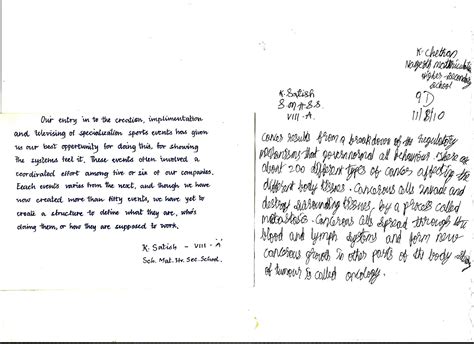 Our entry in to the creation, implimentation
and televising of specialization sports events has given
us our best opportunity for doing this, for showing
the systems feel it. These events often involved a
coordinated effort among five or six of our companies.
Each events varies from the next, and though we have
now created more than fifty events, we have yet to
create a structure to define what they are, who's
doing them, or how they are supposed to work.
K. Satish - VIII - A
Sch. Mat. Hr. Sec. School.
K. Chethan
Nagesh matriculation
Higher-secondary
School
9 D
11/8/10
K. Satish
S.M.H.S.S.
VIII - A.
Cancer results from a breakdown of the regulatory
mechanisms that govern normal behaviour. There are
about 200 different types of cancer affecting the
different body tissues. Cancerous cells invade and
destroy surrounding tissues. by a process called
metastasis. Cancerous cells spread through the
blood and lymph systems and form new
cancerous growth in other parts of the body
of tumour is called oncology.